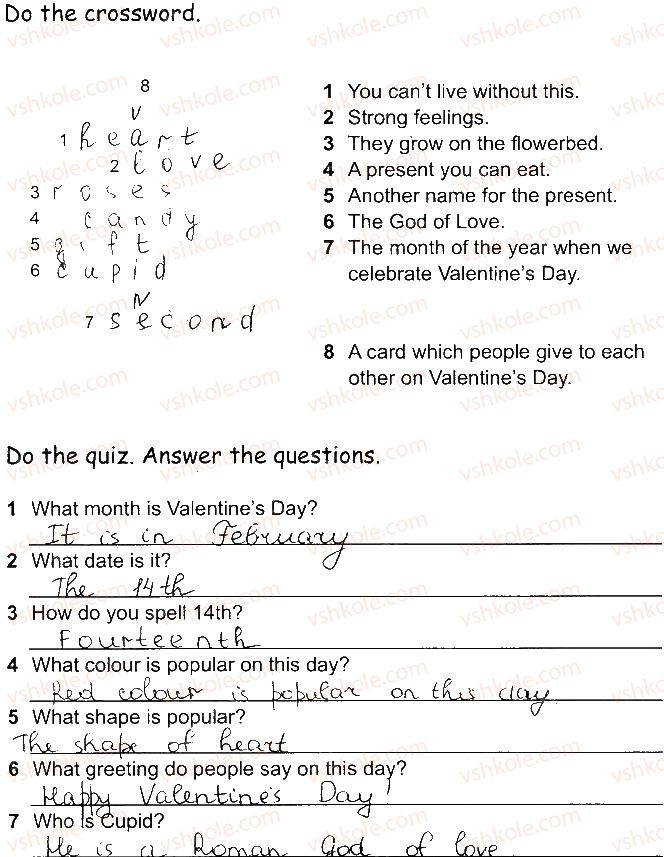 Do the crossword.
8
V
1 heart
2 love
3 roses
4 candy
5 gift
6 cupid
N
7 second
1 You can't live without this.
2 Strong feelings.
3 They grow on the flowerbed.
4 A present you can eat.
5 Another name for the present.
6 The God of Love.
7 The month of the year when we
celebrate Valentine's Day.
8 A card which people give to each
other on Valentine's Day.
Do the quiz. Answer the questions.
1 What month is Valentine's Day?
It is in February
2 What date is it?
The 14th
3 How do you spell 14th?
Fourteenth
4 What colour is popular on this day?
Red colour is popular on this day
5 What shape is popular?
The shape of heart
6 What greeting do people say on this day?
Happy Valentine's Day!
7 Who is Cupid?
He is a Roman God of love
vshkole.com